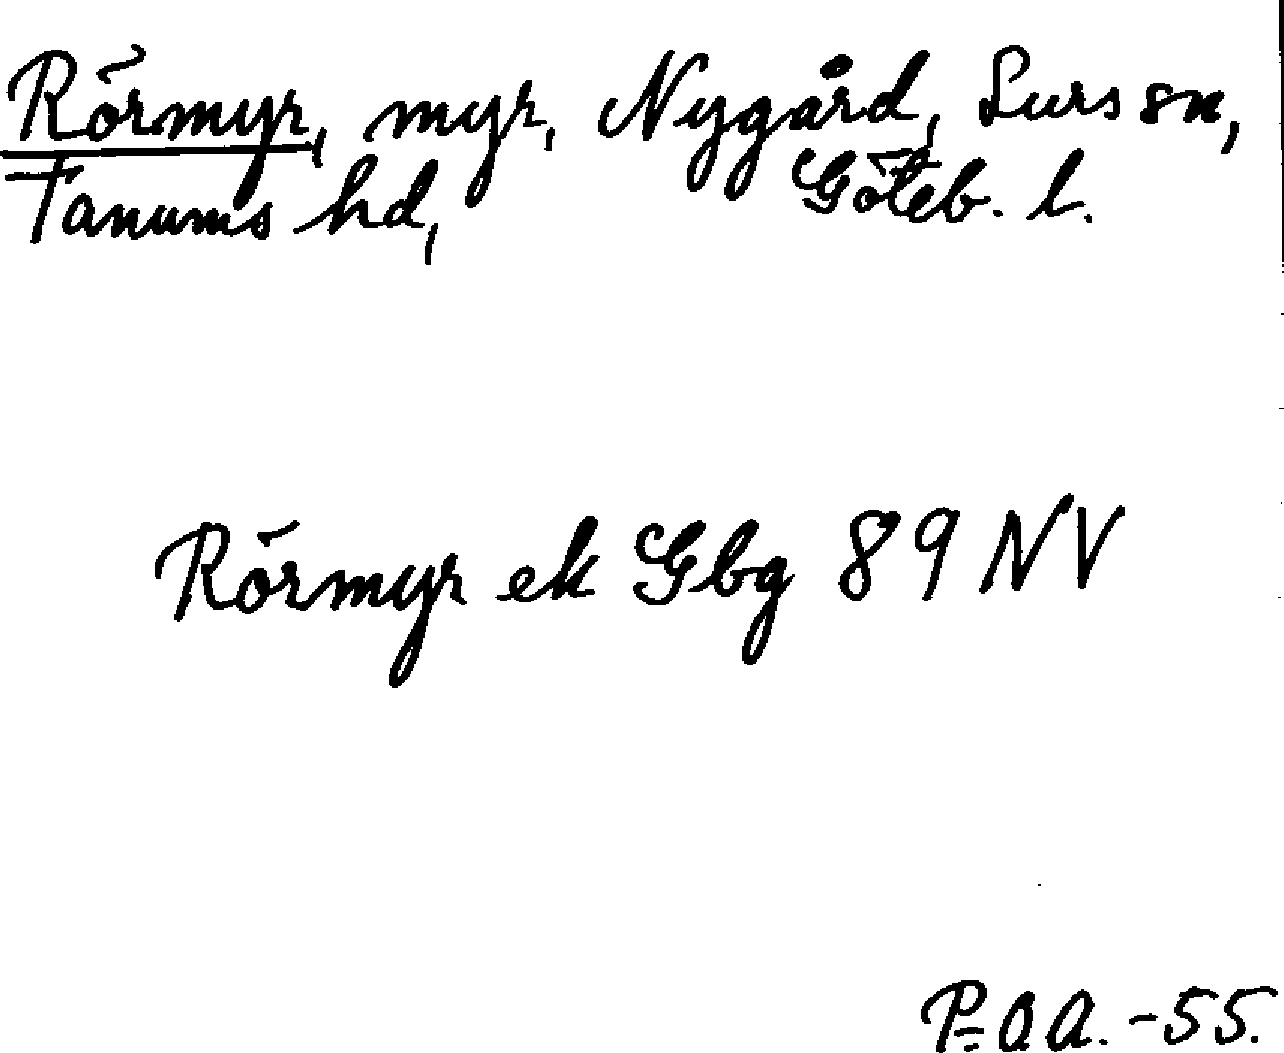 Rörmyr, myr, Nygård, Lurs sn,
Tanums hd, Göteb. l.
Rörmyr ek Gbg 89 NV
P=a a. -55.